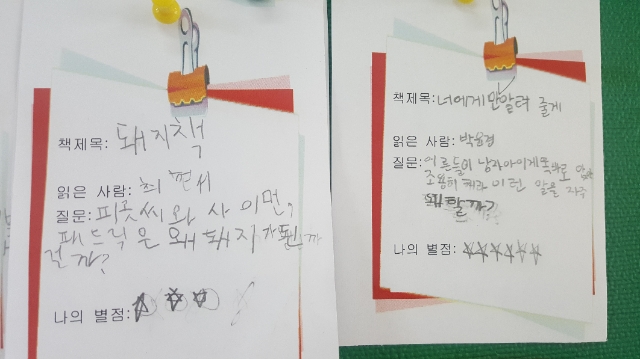 책제목: 돼지책
읽은 사람: 최
질문: 피곳씨와 사이먼,
패트릭은 왜 돼지가 된
걸까?
나의 별점: ☆☆☆
책제목: 너에게만 알려 줄게
읽은 사람: 박웅겸
질문: 어른들이 남자아이에게 똑바로
조용히 해라 이런 말을 자주
왜 할까?
나의 별점: ☆☆☆☆☆☆☆